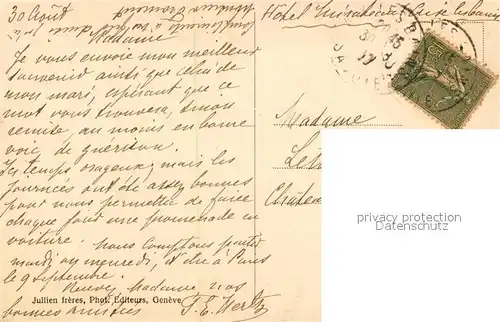 30 Août
Madame
Je vous envoie mon meilleur
souvenir ainsi que celui de
mon mari, espérant que ce
mot vous trouvera, sinon
remise, au moins en bonne
voie de guérison.
Ici temps orageux, mais les
journées ont été assez bonnes
pour nous permettre de faire
chaque jour une promenade en
voiture. Nous comptons partir
mardi ou mercredi, et être à Paris
le 9 Septembre.
Recevez Madame nos
bonnes amitiés
Hôtel
Madame
privacy protection
Jullien frères, Phot. Editeurs, Genève